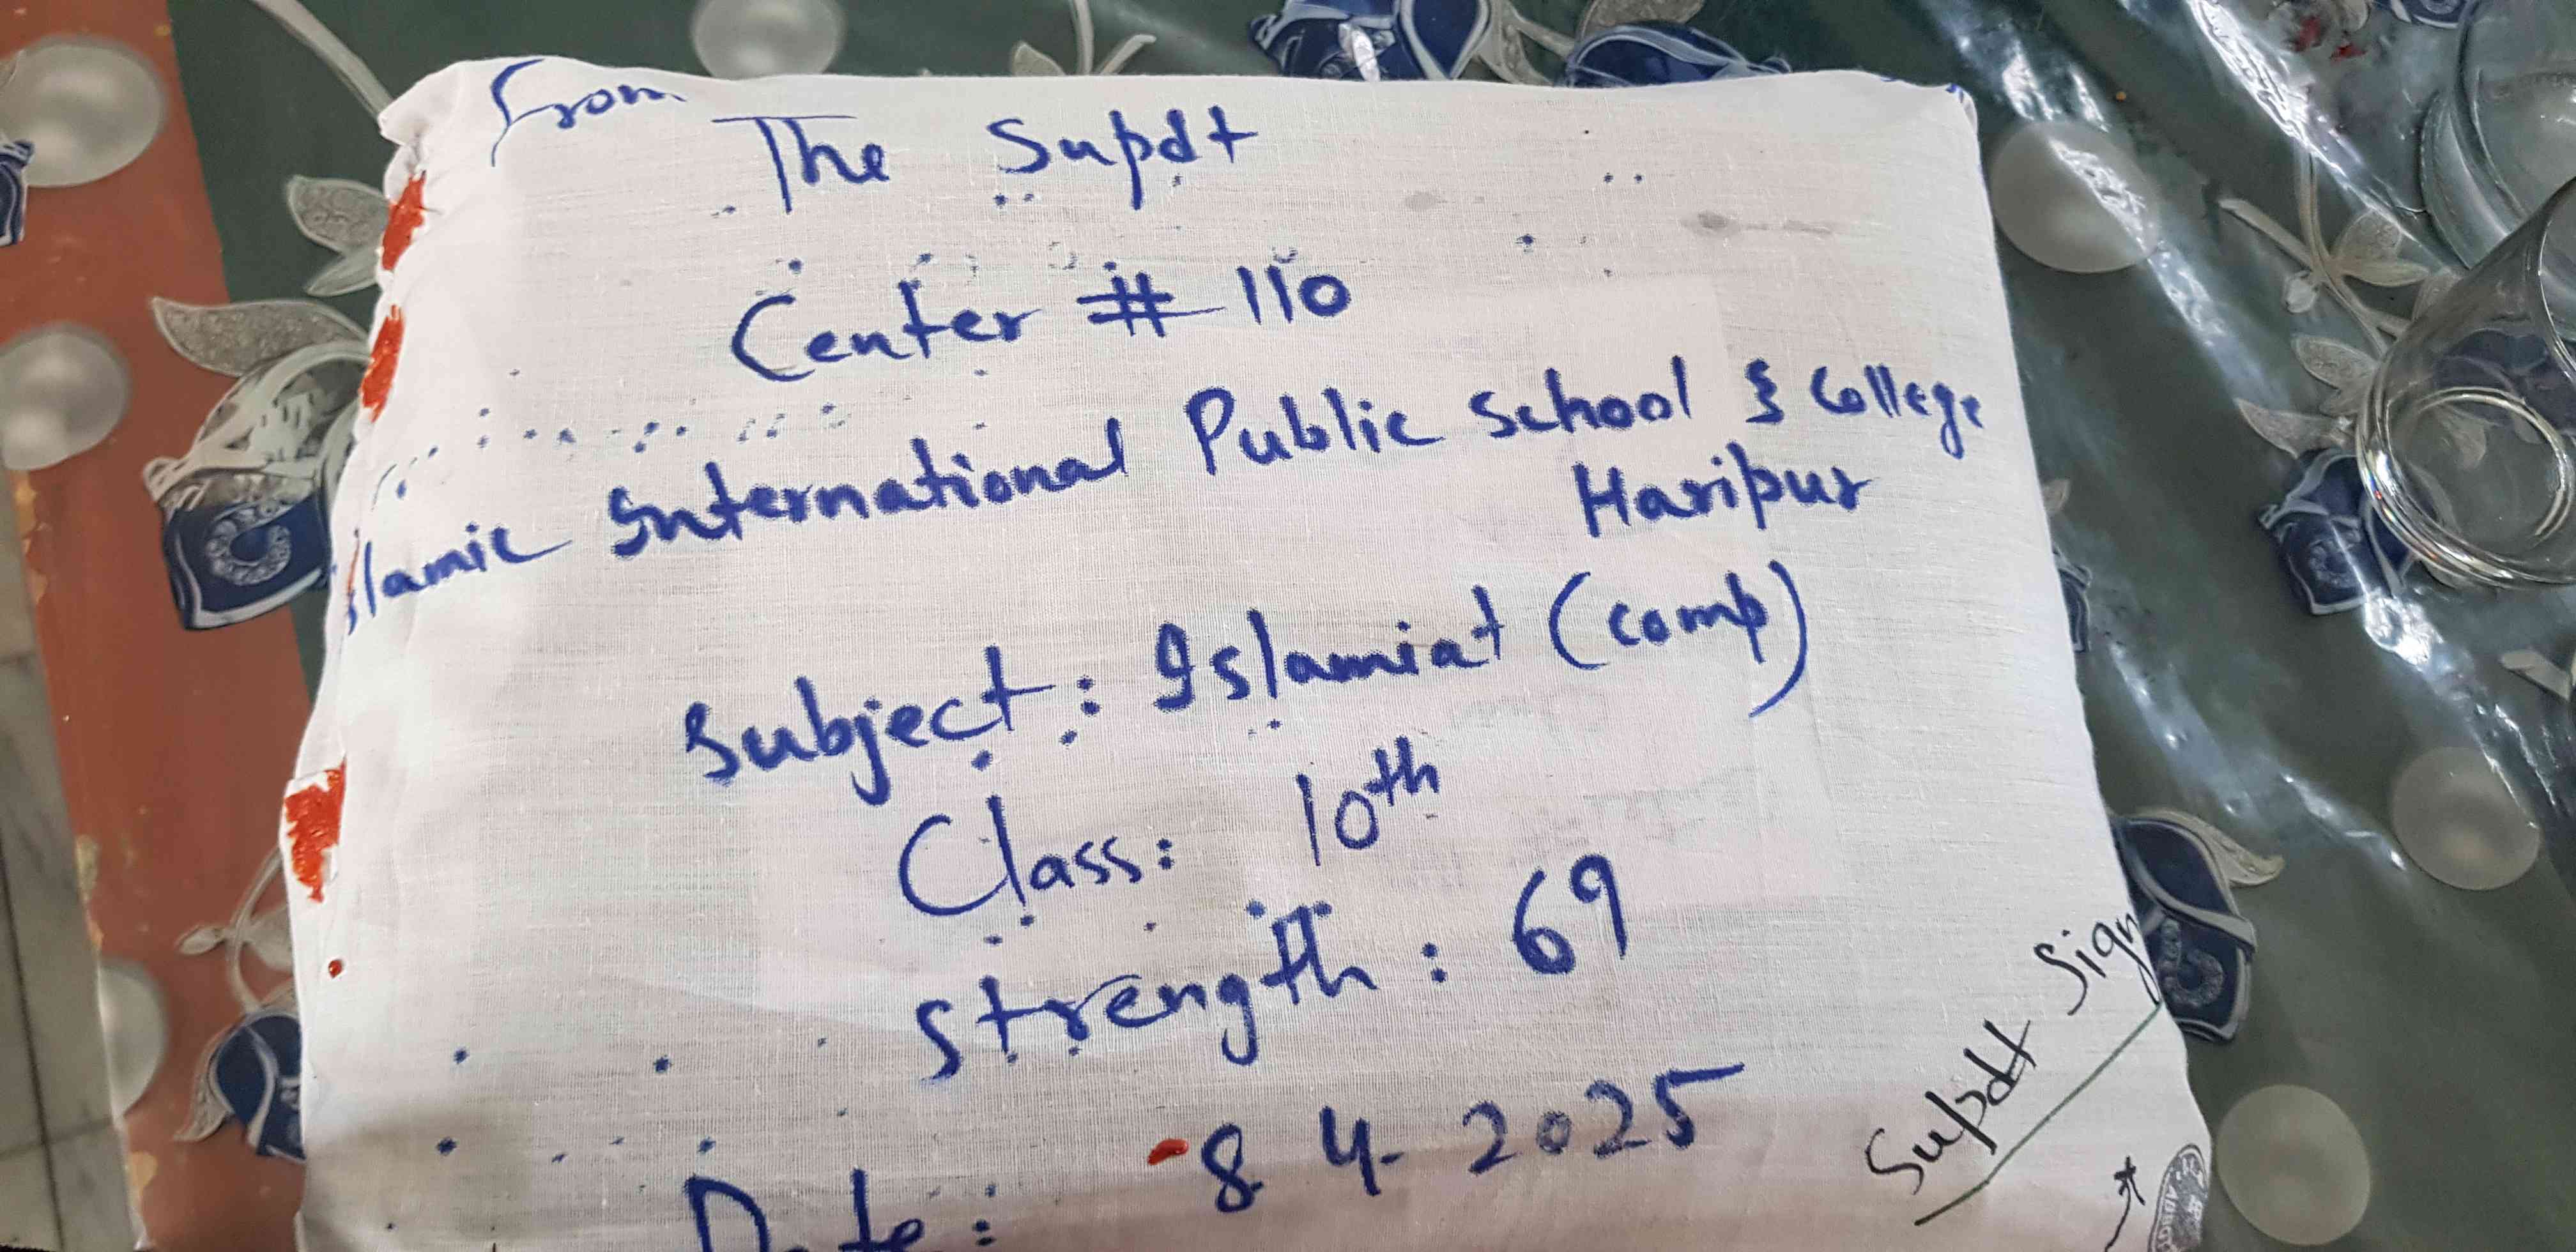 From
The Supdt
Center # 110
Islamic International Public School & College
Haripur
Subject: Islamiat (comp)
Class: 10th
Strength: 69
Date: 8-4-2025
Supdt Sign